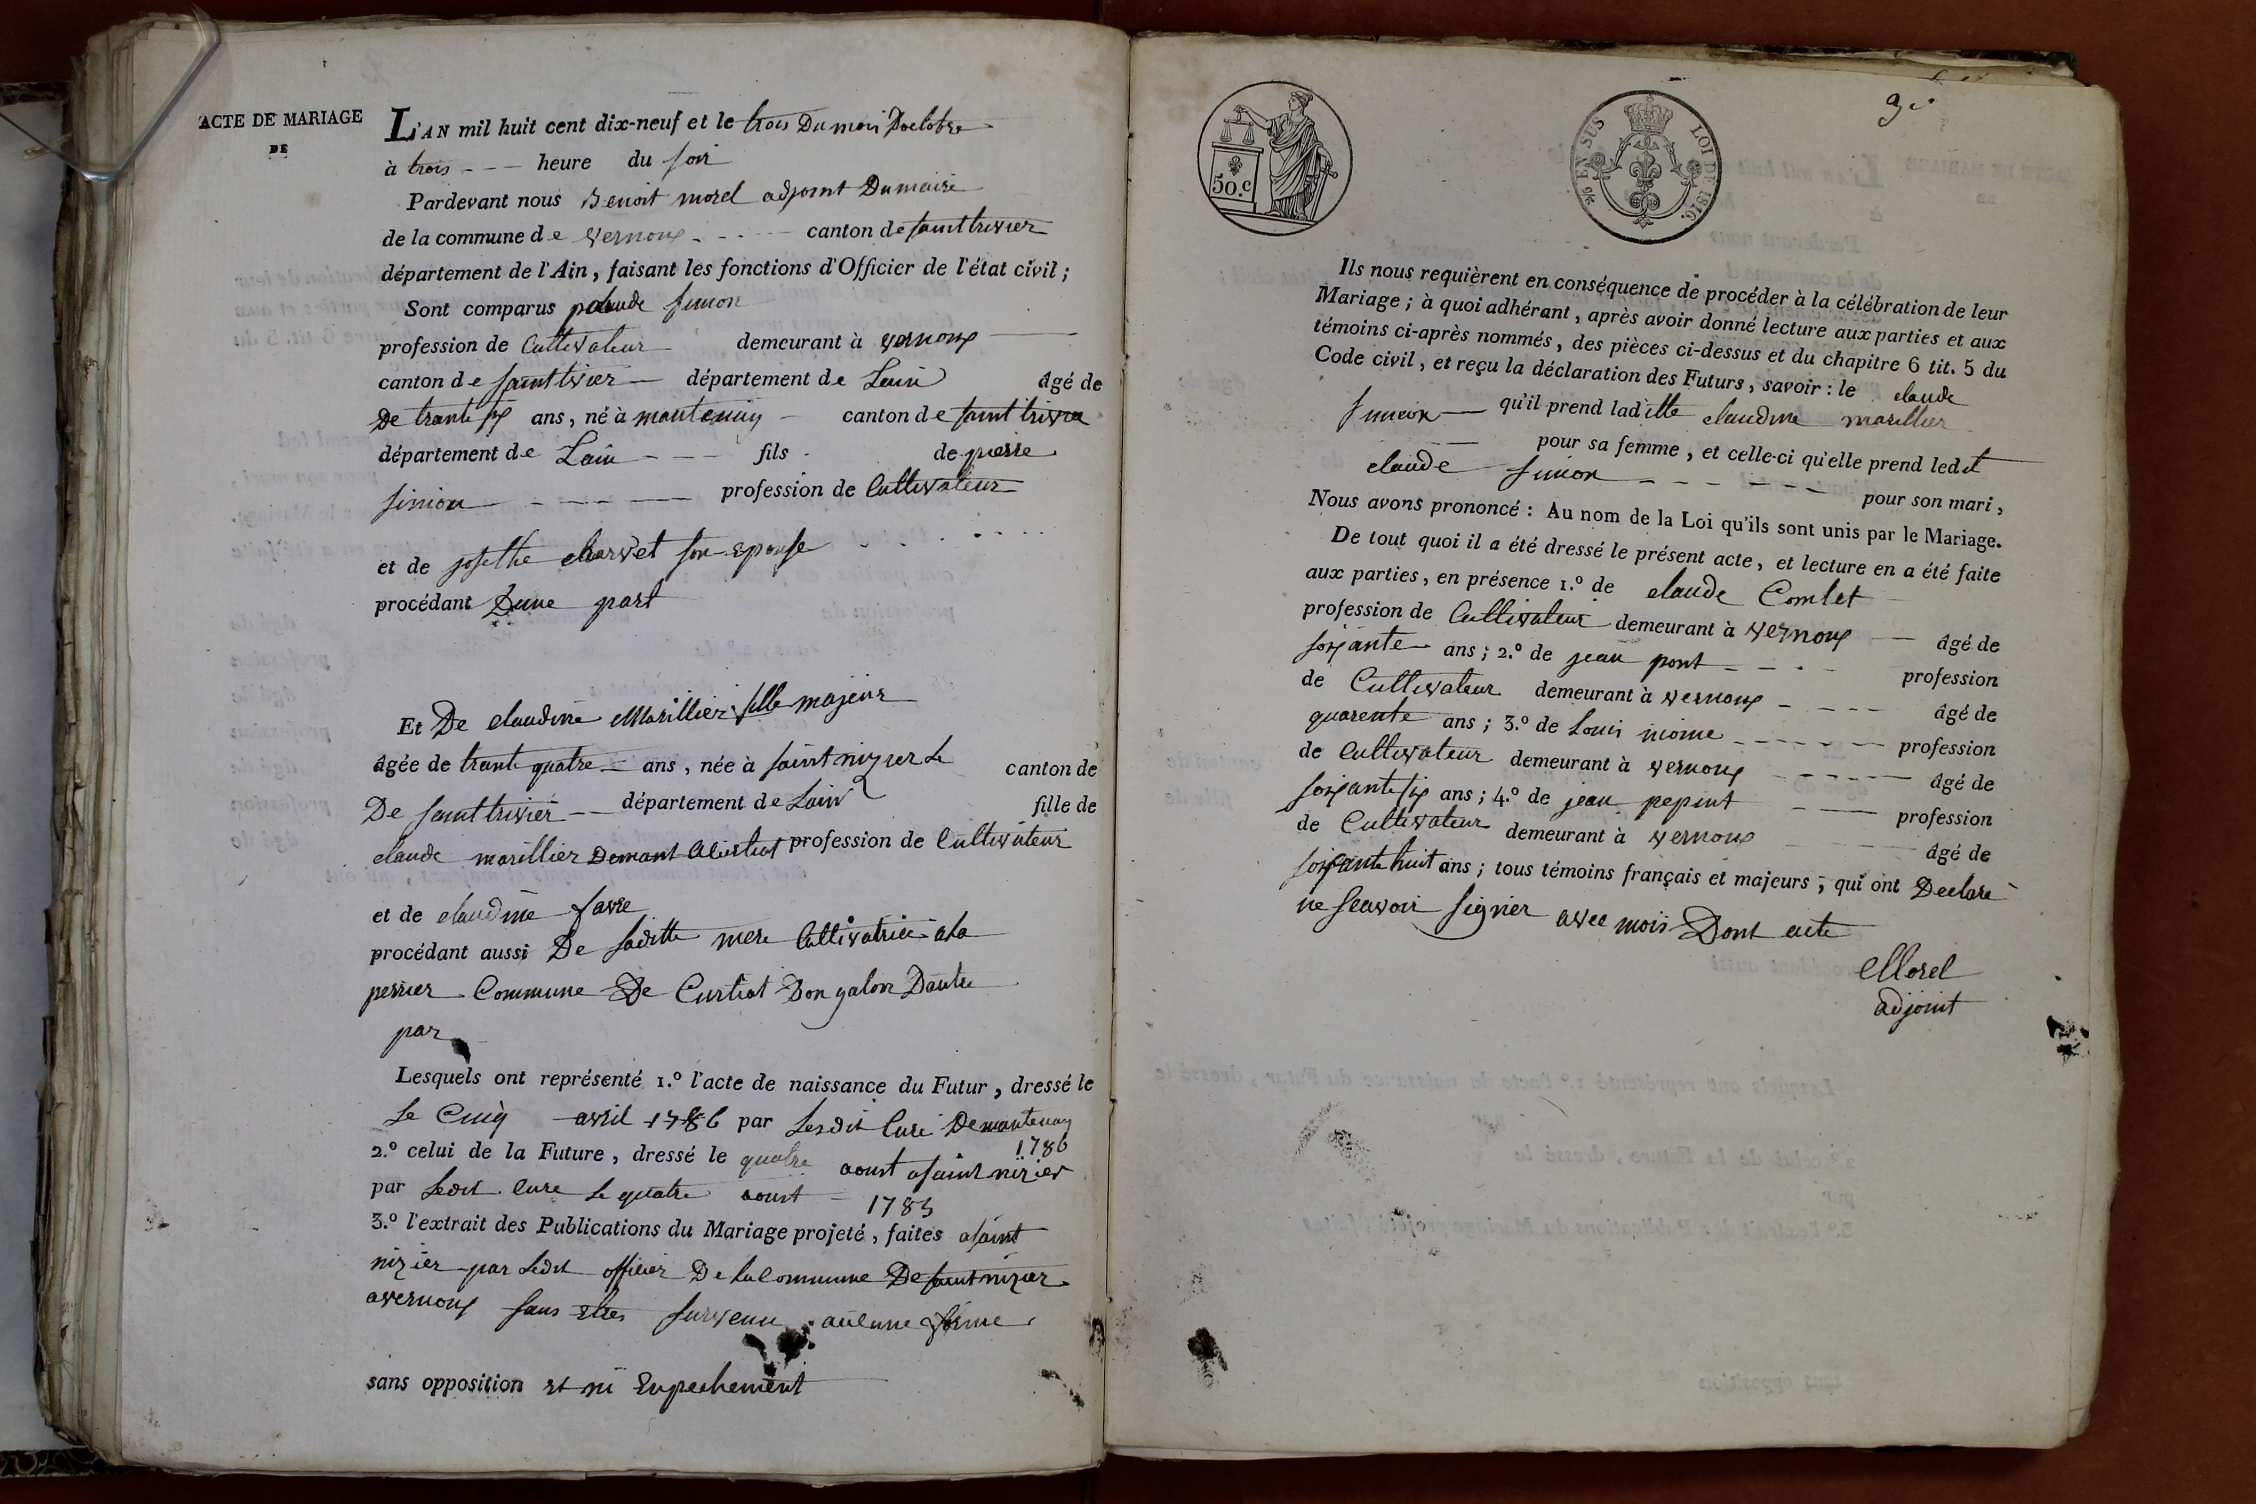 ACTE DE MARIAGE
DE
L'AN mil huit cent dix-neuf et le trois Du mois Doctobre
à trois --- heure du soir
Pardevant nous Benoit morel adjoint Dumaire
de la commune de vernoux canton de sainttrivier
département de l'Ain, faisant les fonctions d'Officier de l'état civil ;
Sont comparus claude simion
profession de Cultivateur demeurant à vernoux
canton de sainttrivier département de Lain âgé de
De trante six ans, né à montenay canton de saint trivier
département de Lain fils de pierre
simion profession de Cultivateur
et de josethe charvet son Epouse
procédant Dune part
Et De claudine Marillier fille majeur
âgée de trante quatre ans, née à saint nizier Le canton de
De sainttrivier département de Lain fille de
claude marillier Demant profession de Cultivateur
et de claudine favre
procédant aussi De sa ditte mere Cultivatrice a la
perrier Commune De Curtiat Dongalon Dautre
par
Lesquels ont représenté 1.º l'acte de naissance du Futur, dressé le
Le Cinq avril 1786 par Lesdit Curé De montenay
1786
2.º celui de la Future, dressé le quatre aoust asaint nizier
par Ledit Cure Le quatre aoust 1785
3.º l'extrait des Publications du Mariage projeté, faites asaint
nizier par Ledit officier De la Commune De saint nizier
avernoux sans etres survenu aucune
sans opposition et ni Enpechement
50.c
EN SUS
LOI DE 1816.
Ils nous requièrent en conséquence de procéder à la célébration de leur
Mariage ; à quoi adhérant, après avoir donné lecture aux parties et aux
témoins ci-après nommés, des pièces ci-dessus et du chapitre 6 tit. 5 du
Code civil, et reçu la déclaration des Futurs, savoir : le claude
simion qu'il prend laditte claudine marillier
pour sa femme, et celle-ci qu'elle prend ledit
claude simion pour son mari,
Nous avons prononcé : Au nom de la Loi qu'ils sont unis par le Mariage.
De tout quoi il a été dressé le présent acte, et lecture en a été faite
aux parties, en présence 1.º de claude Comtet
profession de Cultivateur demeurant à vernoux âgé de
soixante ans ; 2.º de jean pont profession
de Cultivateur demeurant à vernoux âgé de
quarente ans ; 3.º de Louis moine profession
de Cultivateur demeurant à vernoux âgé de
soixantesix ans ; 4.º de jean pepint profession
de Cultivateur demeurant à vernoux âgé de
soixante huit ans ; tous témoins français et majeurs, qui ont Declare
ne scavoir signer avec mois Dont acte
Morel
adjoint